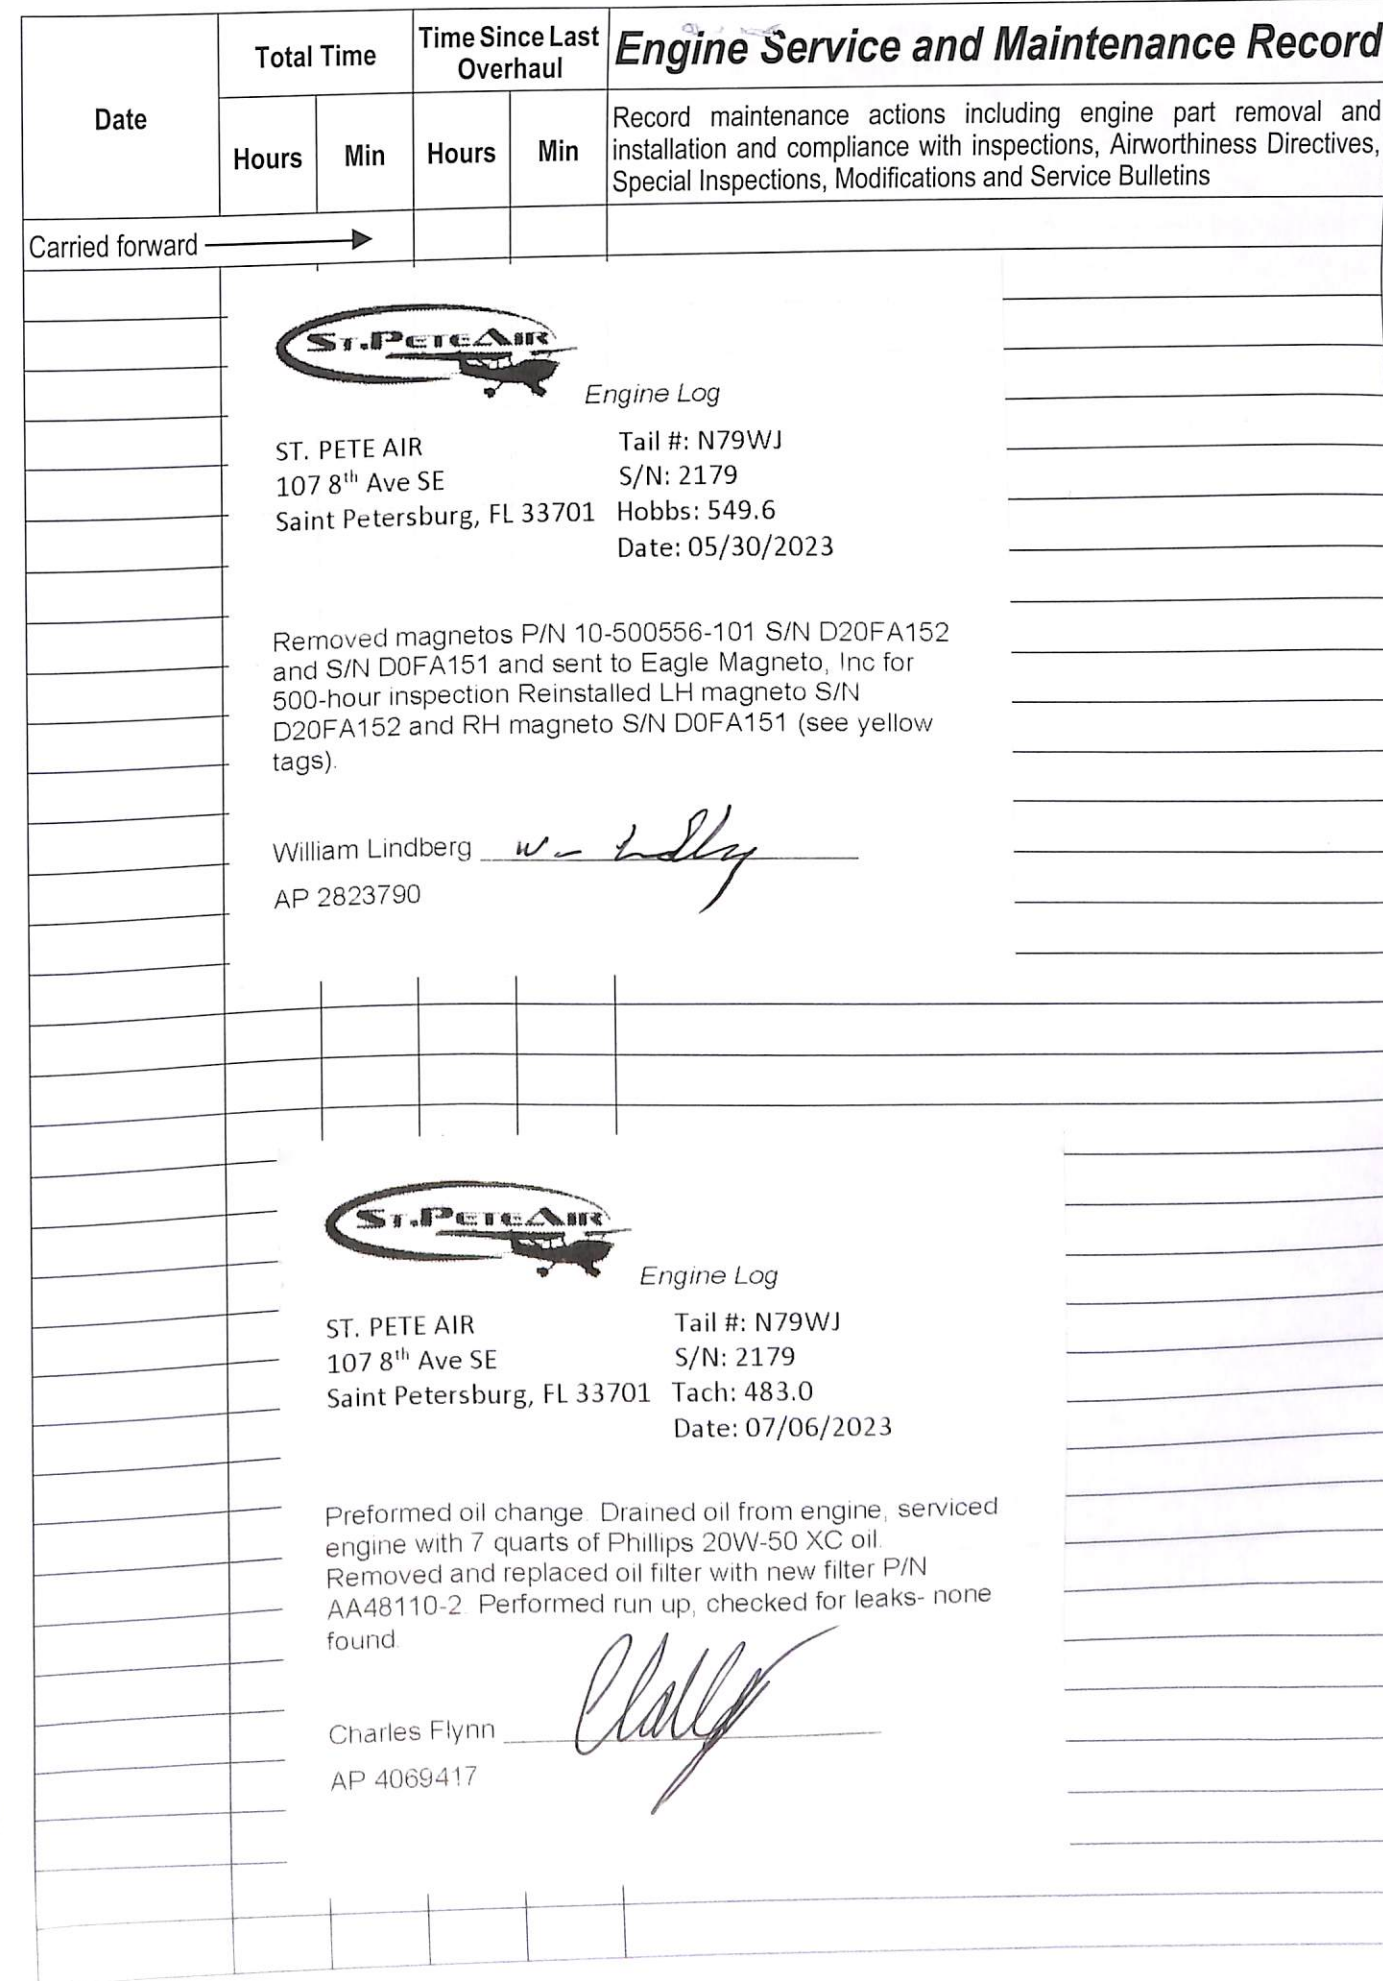 Date
Total Time
Time Since Last
Overhaul
Engine Service and Maintenance Record
Hours
Min
Hours
Min
Record maintenance actions including engine part removal and
installation and compliance with inspections, Airworthiness Directives,
Special Inspections, Modifications and Service Bulletins
Carried forward
ST.PETEAIR
Engine Log
ST. PETE AIR
107 8th Ave SE
Saint Petersburg, FL 33701
Tail #: N79WJ
S/N: 2179
Hobbs: 549.6
Date: 05/30/2023
Removed magnetos P/N 10-500556-101 S/N D20FA152
and S/N D0FA151 and sent to Eagle Magneto, Inc for
500-hour inspection Reinstalled LH magneto S/N
D20FA152 and RH magneto S/N D0FA151 (see yellow
tags).
William Lindberg
AP 2823790
ST.PETEAIR
Engine Log
ST. PETE AIR
107 8th Ave SE
Saint Petersburg, FL 33701
Tail #: N79WJ
S/N: 2179
Tach: 483.0
Date: 07/06/2023
Preformed oil change. Drained oil from engine, serviced
engine with 7 quarts of Phillips 20W-50 XC oil.
Removed and replaced oil filter with new filter P/N
AA48110-2. Performed run up, checked for leaks- none
found.
Charles Flynn
AP 4069417